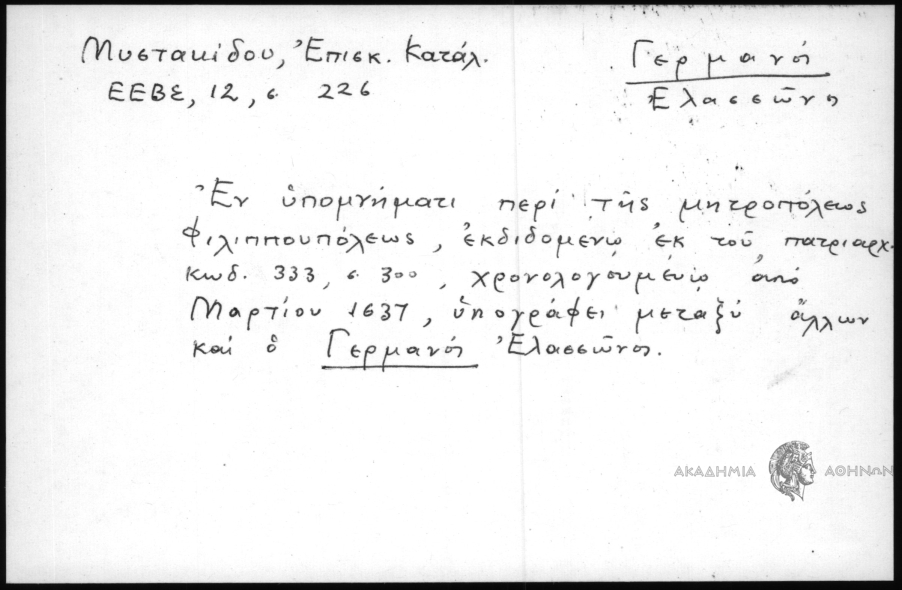 Μυστακίδου, Ἐπισκ. Κατάλ.
ΕΕΒΣ, 12, σ. 226
Γερμανός
Ἐλασσῶνος
Ἐν ὑπομνήματι περί τῆς μητροπόλεως
Φιλιππουπόλεως, ἐκδιδομένῳ ἐκ τοῦ πατριαρχ.
κωδ. 333, σ. 300, χρονολογουμένῳ ἀπό
Μαρτίου 1637, ὑπογράφει μεταξύ ἄλλων
καί ὁ Γερμανός Ἐλασσῶνος.
ΑΚΑΔΗΜΙΑ ΑΘΗΝΩΝ